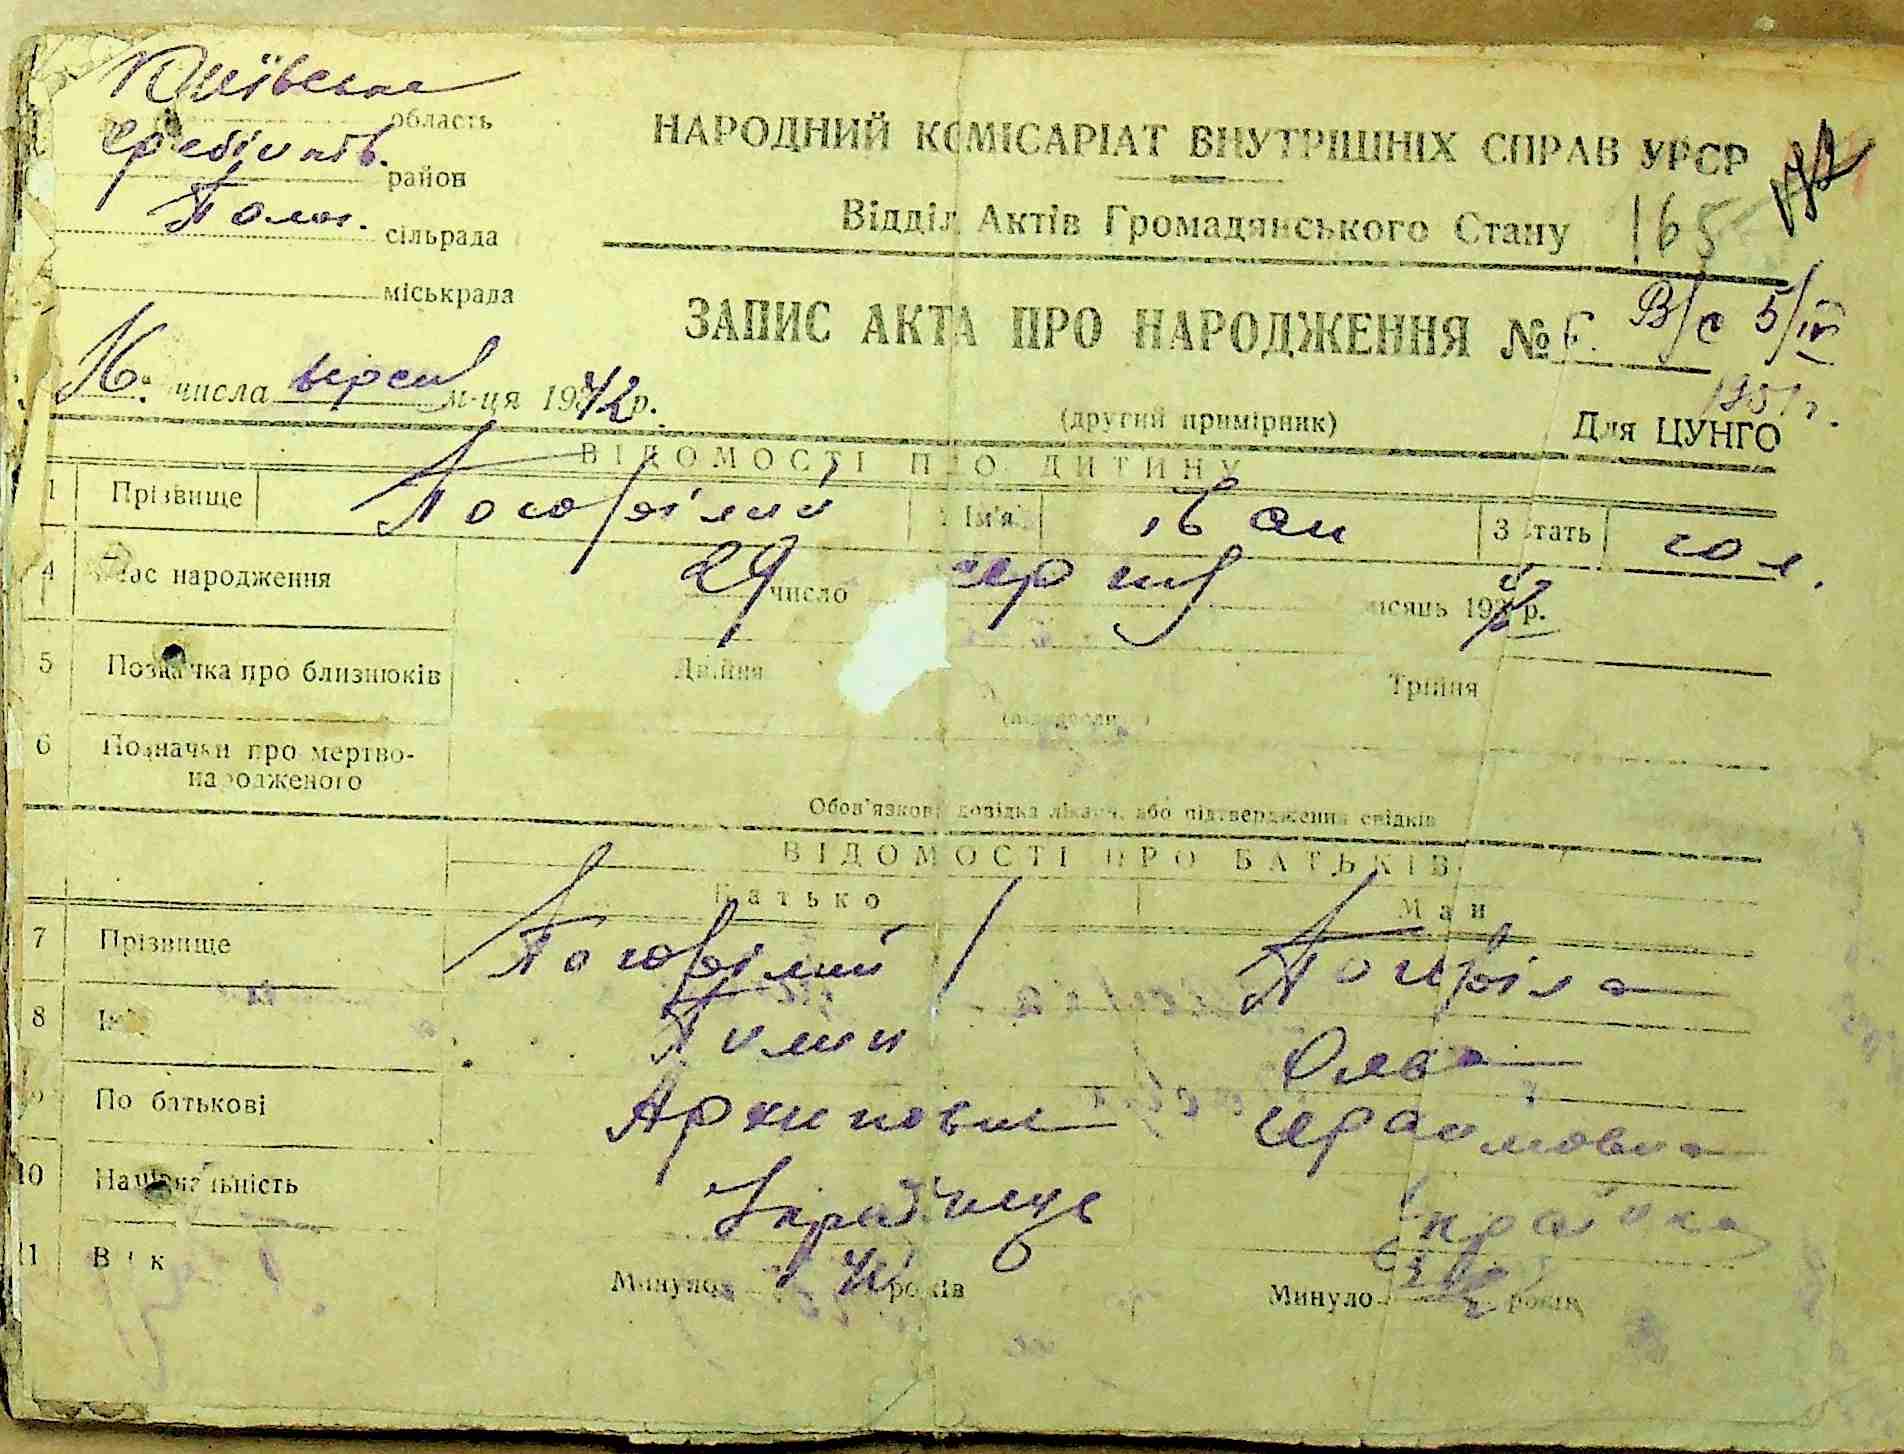 Київська область
Гребінків. район
сільрада
міськрада
НАРОДНИЙ КОМІСАРІАТ ВНУТРІШНІХ СПРАВ УРСР
Відділ Актів Громадянського Стану 165
ЗАПИС АКТА ПРО НАРОДЖЕННЯ №
В/с 5/IV
1951 г.
числа версня м-ця 1942 р.
(другий примірник) Для ЦУНГО
ВІДОМОСТІ ПРО ДИТИНУ
1 Прізвище Погорілий Ім'я Іван 3 Стать чол.
4 Час народження 29 число серпня місяць 1942 р.
5 Позначка про близнюків Двійня Трійня
(підкреслити)
6 Позначки про мертво-
народженого
Обов'язкова довідка лікаря, або підтвердження свідків
ВІДОМОСТІ ПРО БАТЬКІВ
Батько Мати
7 Прізвище Погорілий Погоріла
8 Ім'я
9 По батькові Архипович
10 Національність Українець Українка
11 Вік Минуло років Минуло років